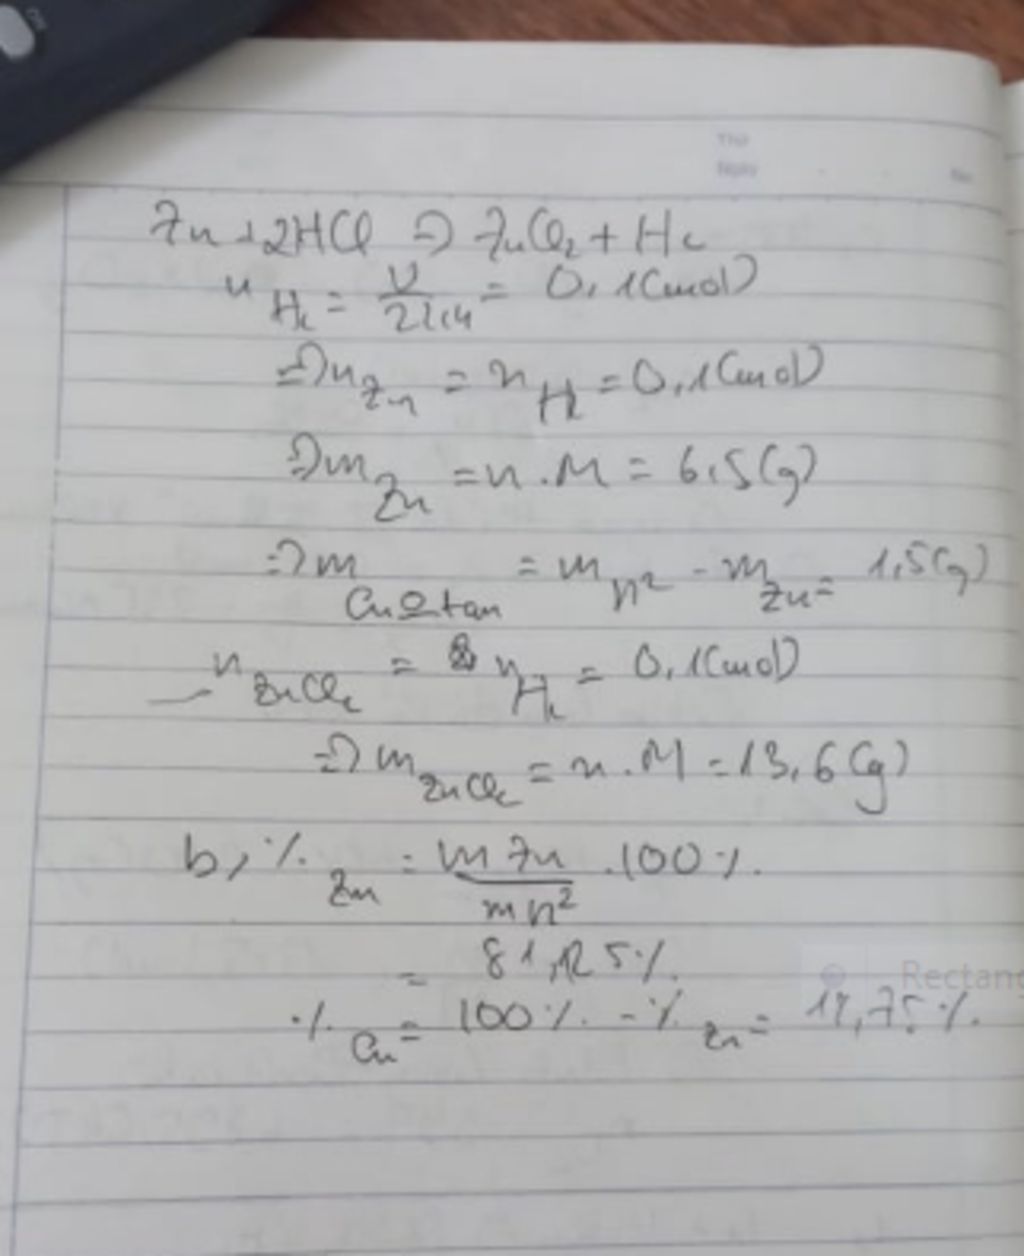 Thứ
Ngày
No
Zn + 2HCl => ZnCl2 + H2
n H2 = V/22,4 = 0,1 (mol)
=> n Zn = n H2 = 0,1 (mol)
=> m Zn = n . M = 6,5 (g)
=> m Cu o tan = m h² - m Zn = 1,5 (g)
n ZnCl2 = n H2 = 0,1 (mol)
=> m ZnCl2 = n . M = 13,6 (g)
b, % Zn = m Zn / m h² . 100 %.
= 81,25 %.
% Cu = 100 % - % Zn = 18,75 %.
Rectang